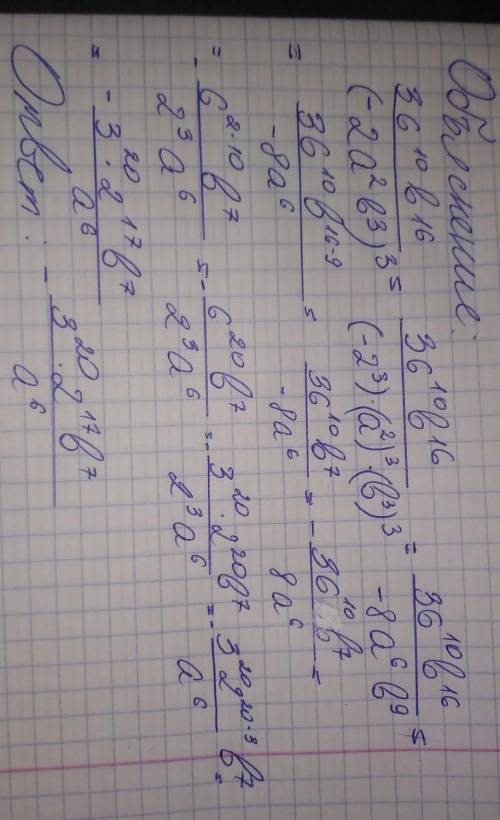 Объяснение:
36¹⁰b¹⁶/(-2a²b³)³ = 36¹⁰b¹⁶/((-2³)·(a²)³·(b³)³) = 36¹⁰b¹⁶/(-8a⁶b⁹) =
= 36¹⁰b¹⁶⁻⁹/(-8a⁶) = 36¹⁰b⁷/(-8a⁶) = - 36¹⁰b⁷/(8a⁶) =
= - 6²·¹⁰b⁷/(2³a⁶) = - 6²⁰b⁷/(2³a⁶) = - 3²⁰·2²⁰b⁷/(2³a⁶) = - 3²⁰2²⁰⁻³b⁷/a⁶ =
= - 3²⁰·2¹⁷b⁷/a⁶
Ответ: - 3²⁰·2¹⁷b⁷/a⁶